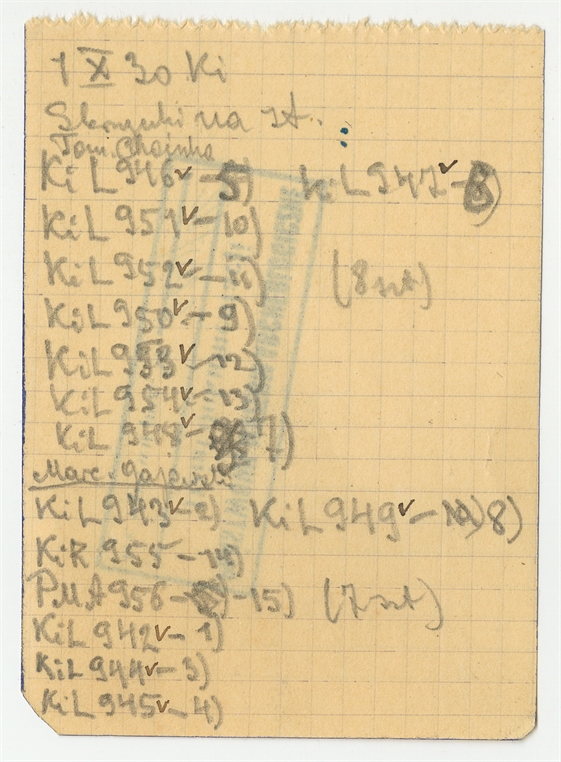 1 X 30 Ki
na
Ki L 946 v - 5) Ki L 947 v - 6)
Ki L 951 v - 10)
Ki L 952 v - 11)
(8 szt)
Ki L 950 v - 9)
Ki L 953 v - 12)
Ki L 954 v - 13)
Ki L 948 v - 7)
Ki L 943 v - 2) Ki L 949 v - 8)
Ki R 955 - 14)
PMA 956 - 15) (7 szt)
Ki L 942 v - 1)
Ki L 944 v - 3)
Ki L 945 v - 4)